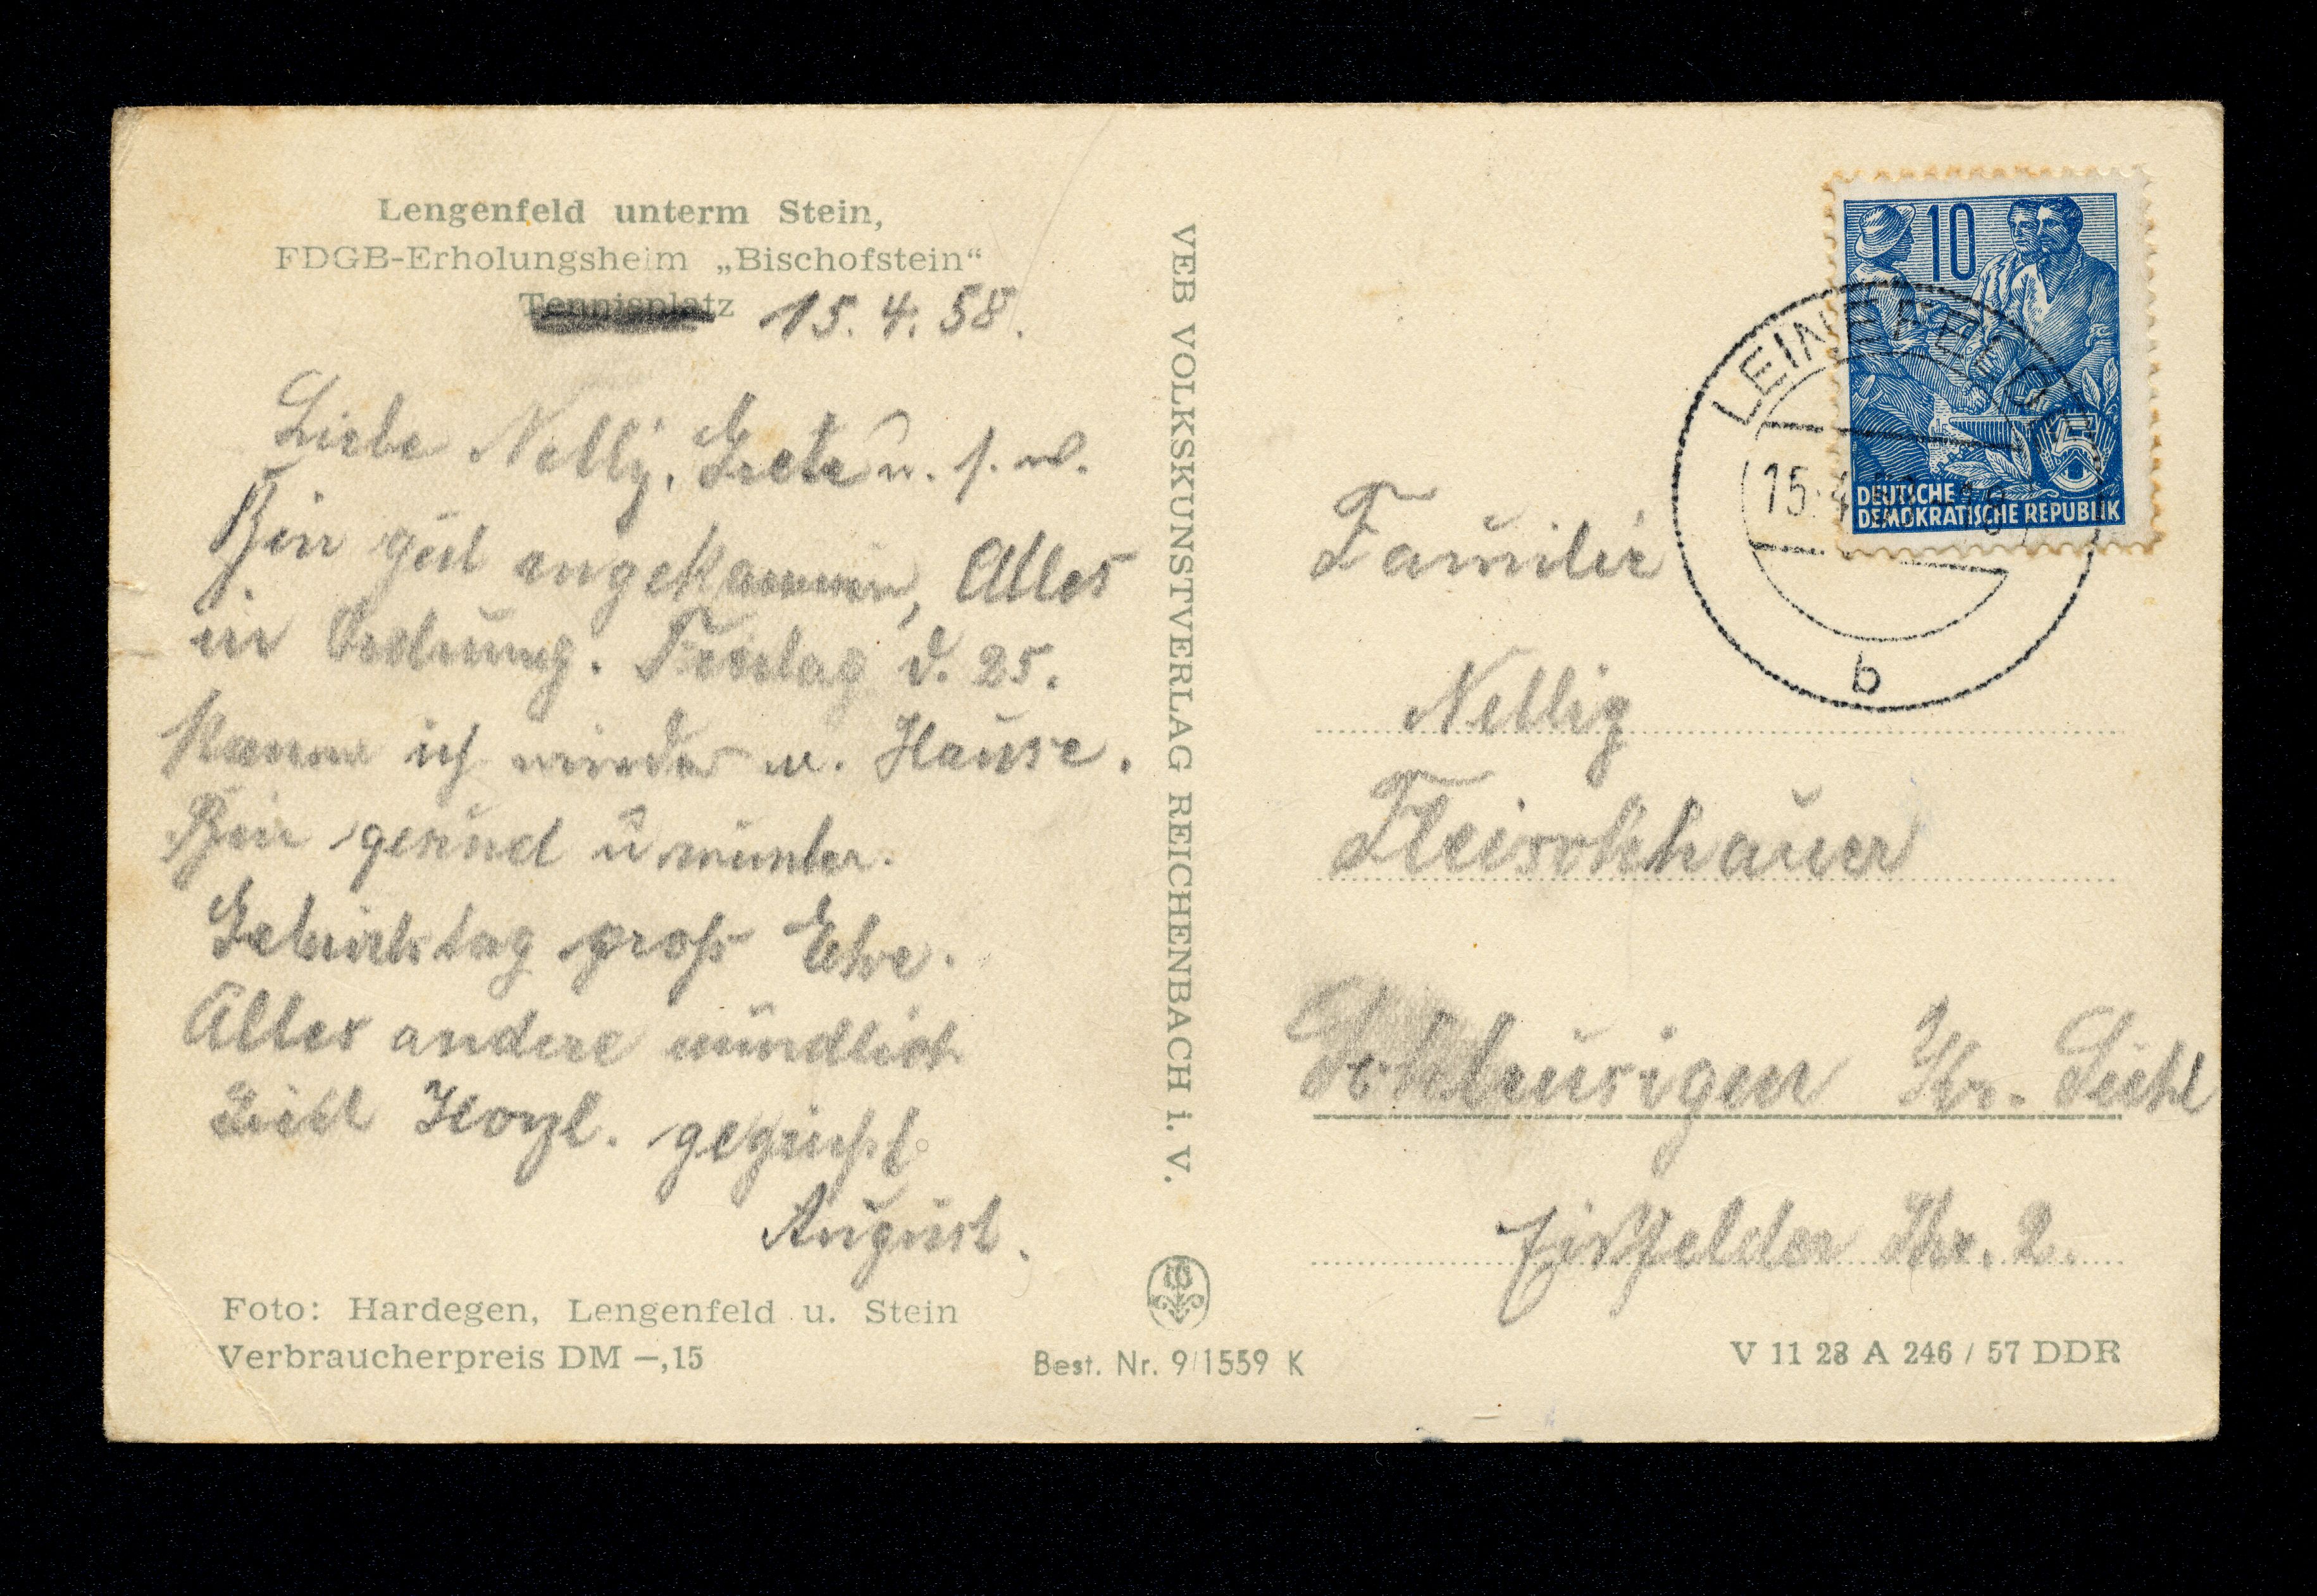 Lengenfeld unterm Stein,
FDGB-Erholungsheim „Bischofstein“
Tennisplatz 15. 4. 58.
Liebe Nelly, Grete u. s. w.
Bin gut angekommen, Alles
in Ordnung. Freitag d. 25.
komme ich wieder n. Hause.
Bin gesund u munter.
Geburtstag groß Ehre.
Alles andere mündlich
Seid Herzl. gegrüßt
August.
Foto: Hardegen, Lengenfeld u. Stein
Verbraucherpreis DM —,15
VEB VOLKSKUNSTVERLAG REICHENBACH i. V.
Best. Nr. 9/1559 K
10
5
DEUTSCHE
DEMOKRATISCHE REPUBLIK
LEINEFELDE
15.4. 18
b
Familie
Nellig
Fleischhauer
Schleusigen Kr. Suhl
Eisfelder Str. 2.
V 11 28 A 246 / 57 DDR